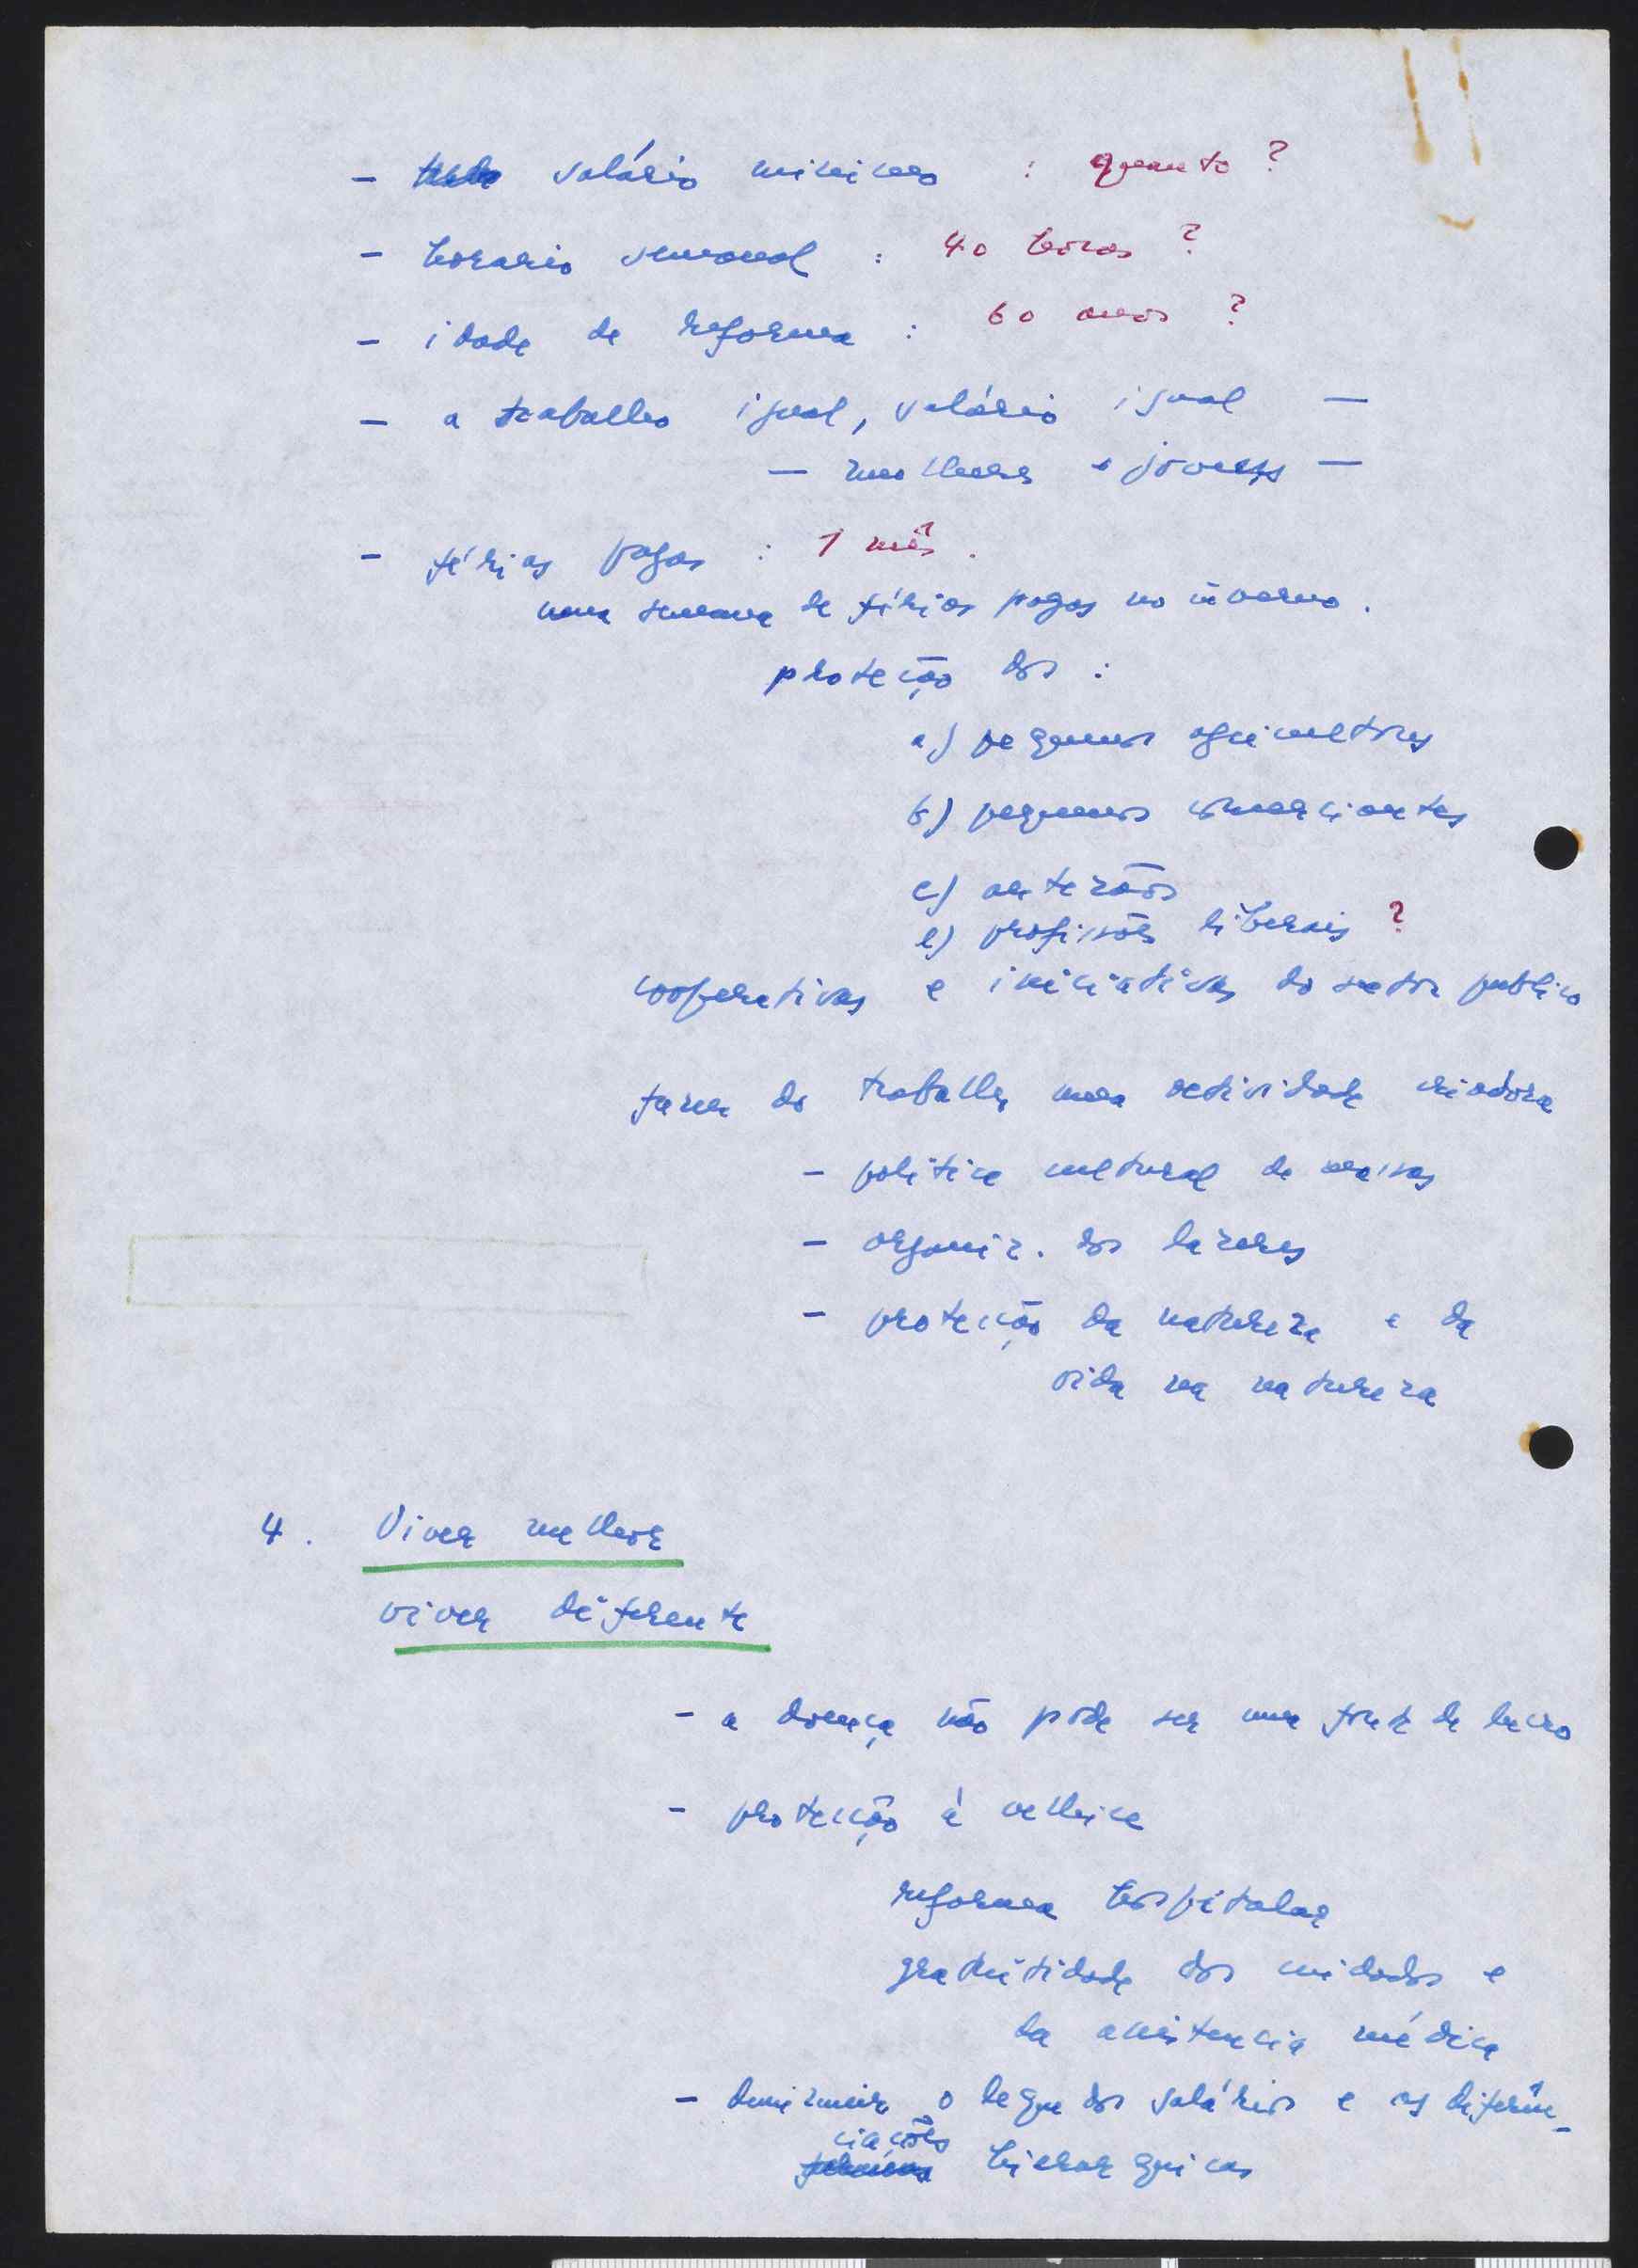 - salário minimo : quanto ?
- horario semanal : 40 horas ?
- idade de reforma : 60 anos ?
- a trabalho igual, salário igual —
— mulheres e jovens —
- férias pagas : 1 mês.
uma semana de férias pagas no inverno.
proteção dos :
a) pequenos agricultores
b) pequenos comerciantes
c) artezãos
e) profissões liberais ?
cooperativas e iniciativas do sector publico
fazer do trabalho uma actividade criadora
- politica cultural de massas
- organiz. dos lazeres
- protecção da natureza e da
vida na natureza
4. Viver melhor
viver diferente
- a doença não póde ser uma fonte de lucro
- protecção à velhice
reforma hospitalar
gratuitidade dos cuidados e
da assistencia médica
- diminuir o leque dos salários e as diferên-
ciações
hierarquicas